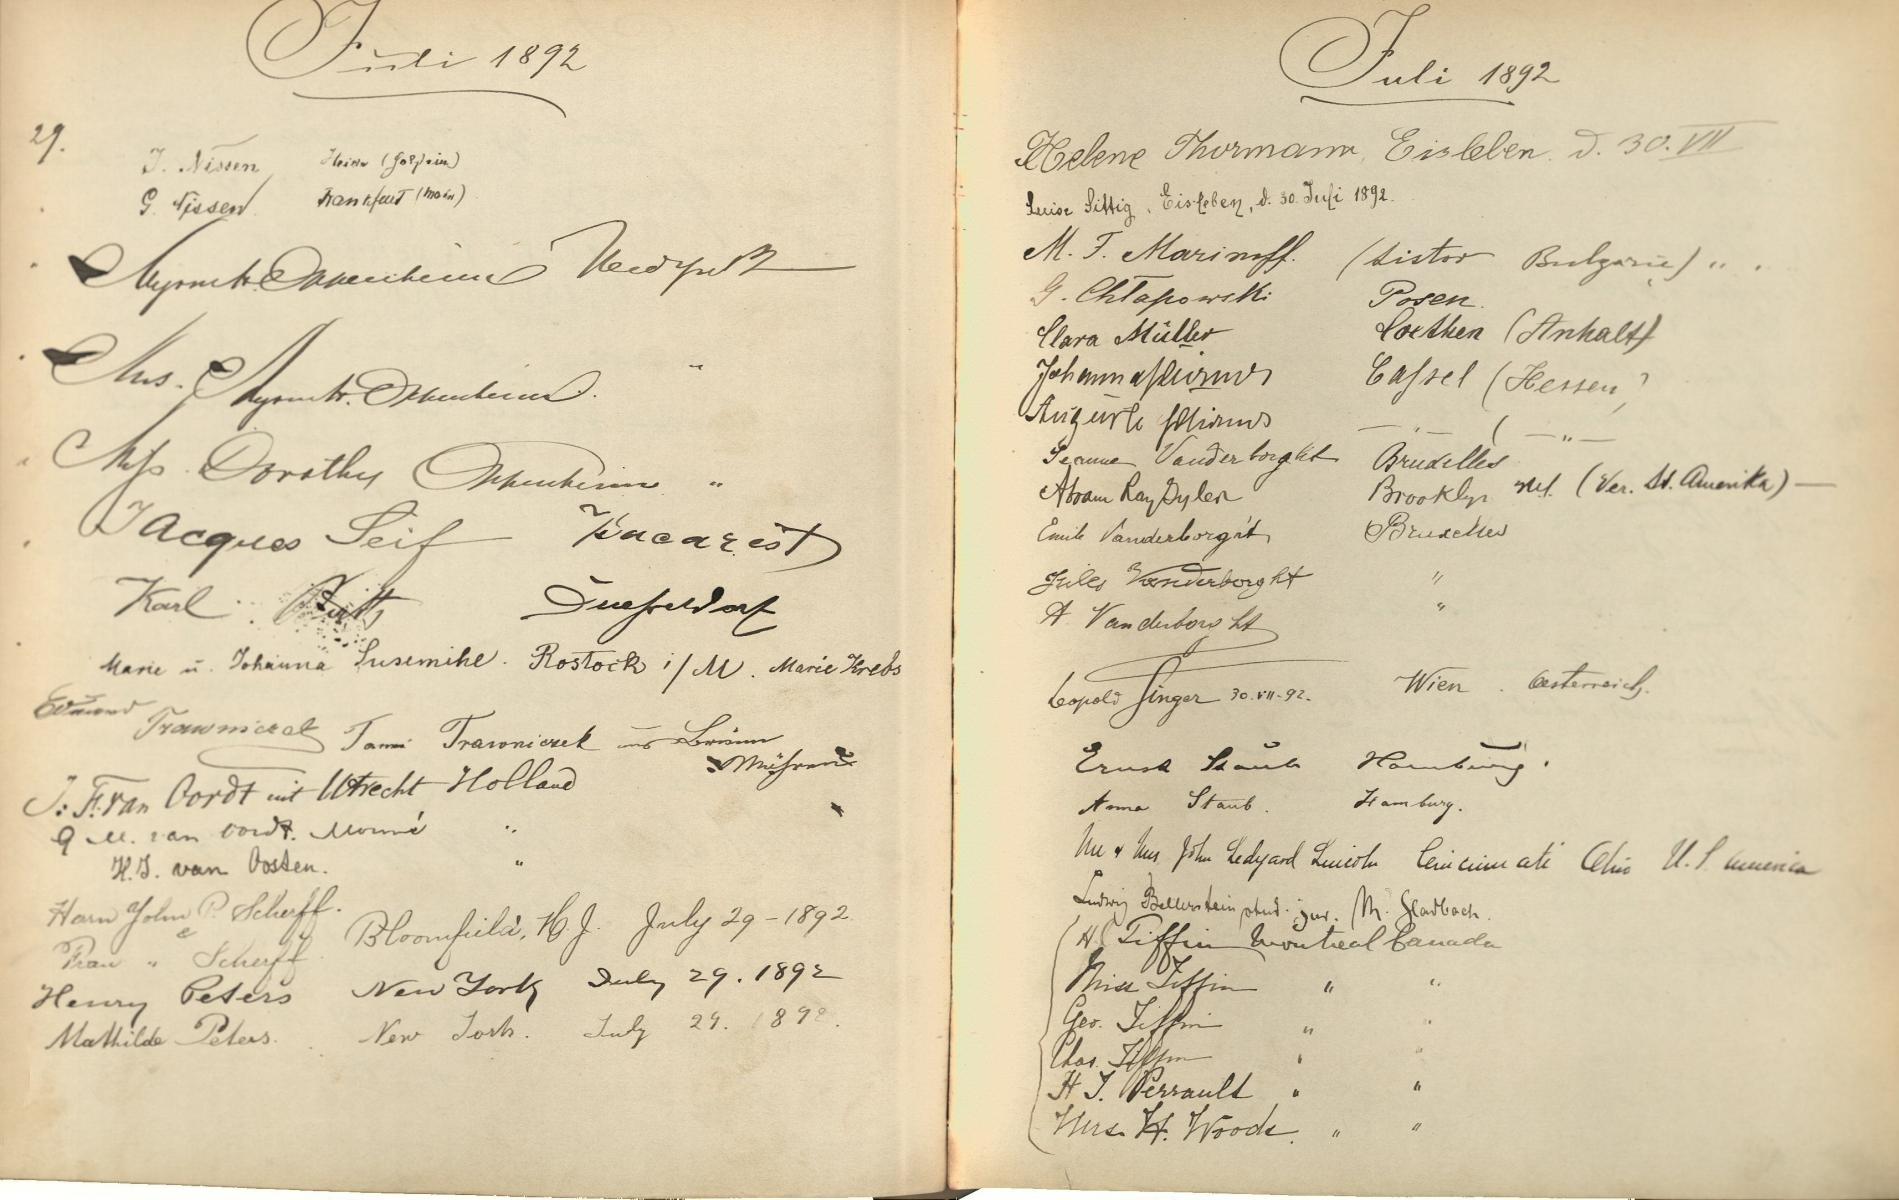 Juli 1892
29.
J. Nissen Heide (Holstein)
G. Nissen Frankfurt (Main)
Oppenheim
Mrs. Oppenheim. "
Miss Dorothy Oppenheim "
Jacques Seif Bucarest
Karl Duesseldorf
Marie u. Johanna Susemihl. Rostock i/M. Marie Krebs
Edmund
Trawniczek Trawniczek aus Brünn
Mähren
J: F. van Oordt mit Utrecht Holland
G M. van Oordt. "
H.J. van Oosten. "
Herrn John P. Scherff.
& Bloomfield, N.J. July 29-1892
Frau " Scherff
Henry Peters New York July 29. 1892
Mathilde Peters. New York. July 29. 1892.
Juli 1892
Helene Thormann, Eisleben. d. 30. VII
Luise Sittig, Eisleben, d. 30. Juli 1892.
M. T. Marinoff. (Sistov Bulgarie) "
G. Chłapowski Posen.
Clara Müller Coethen (Anhalt)
Johanna Cassel (Hessen)
Auguste — " — ( — " —
Jeanne Vanderborght Bruxelles
Abram Ray Tyler Brooklyn NY. (Ver. St. Amerika) —
Emile Vanderborght, Bruxelles
Jules Vanderborght "
A Vanderborght "
Leopold Singer 30.VII-92. Wien. Oesterreich.
Ernst Staub Hamburg.
Anna Staub. Hamburg.
Mr & Mrs John Ledyard Lincoln Cincinnati Ohio U.S. America
Ludwig stud. jur. M. Gladbach.
H. Tiffin Montreal Canada
Miss Tiffin " "
Geo. Tiffin " "
Chas. Tiffin " "
H J. Perrault " "
Mrs. H. Woods. " "